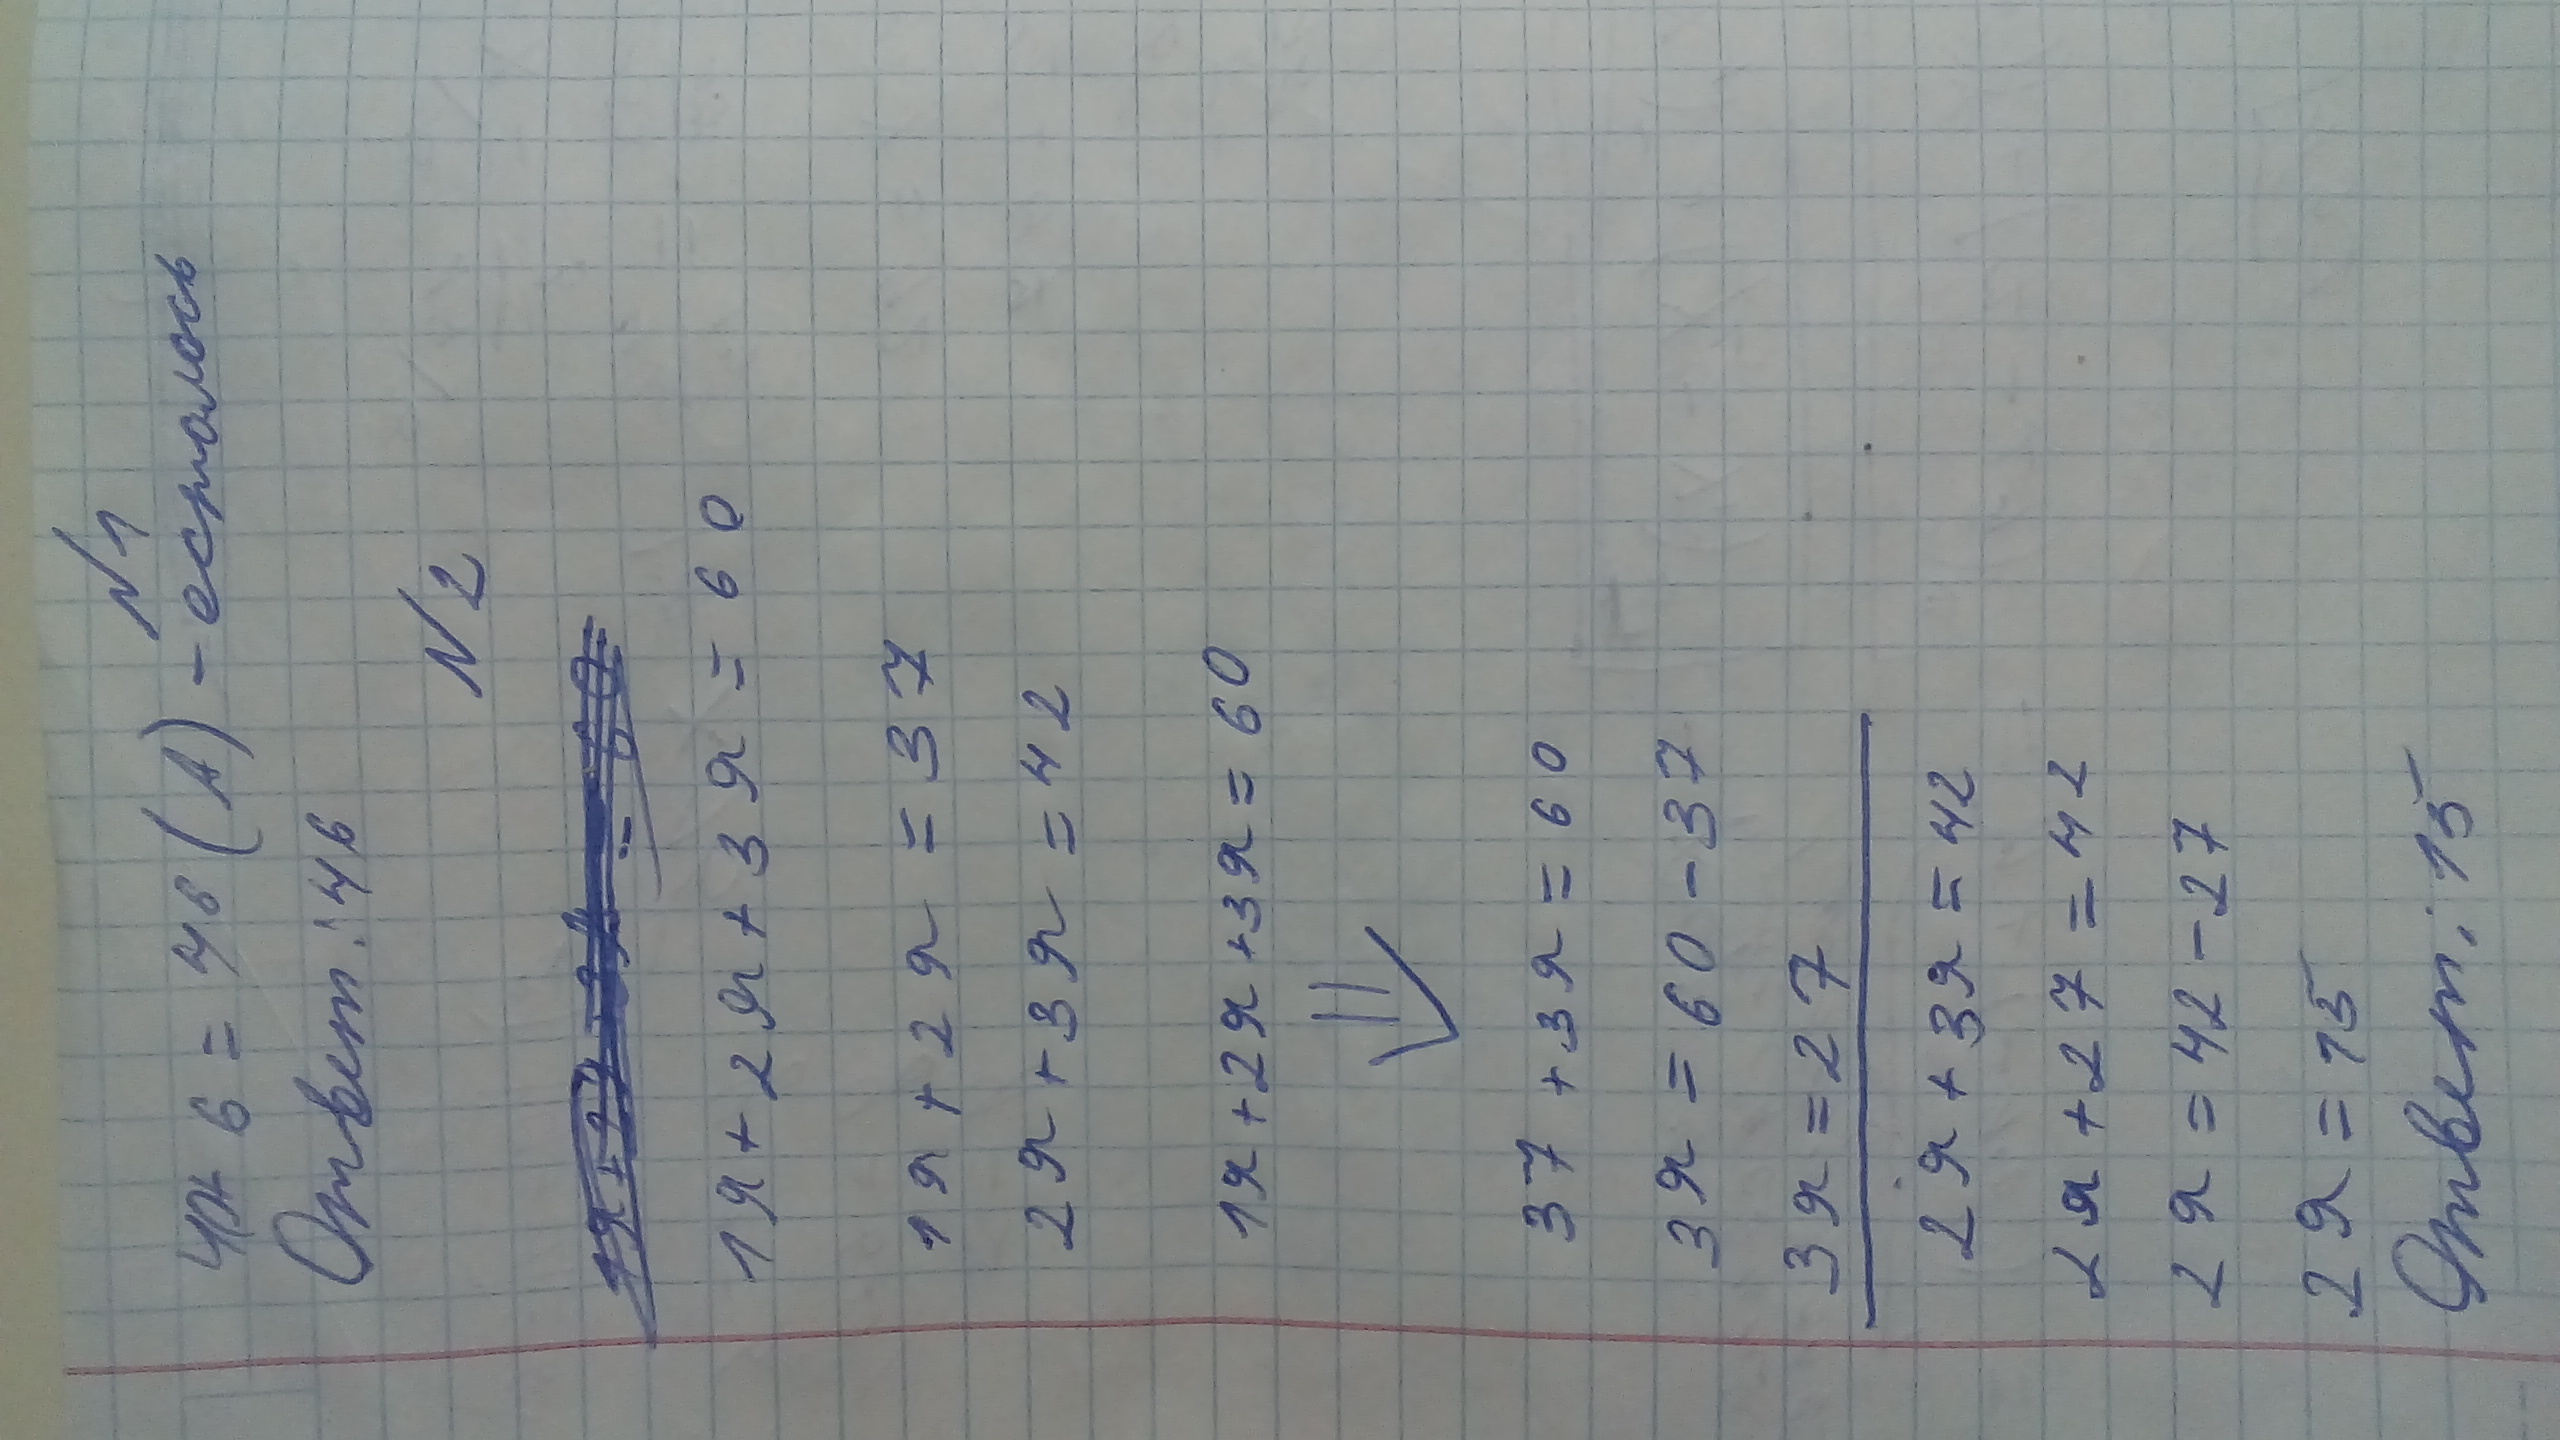 N1
6 = 46 (А) - есталось
Ответ: 46
N2
1я + 2я + 3я = 60
1я + 2я = 37
2я + 3я = 42
1я + 2я + 3я = 60
⇓
37 + 3я = 60
3я = 60 - 37
3я = 27
2я + 3я = 42
2я + 27 = 42
2я = 42 - 27
2я = 15
Ответ: 15